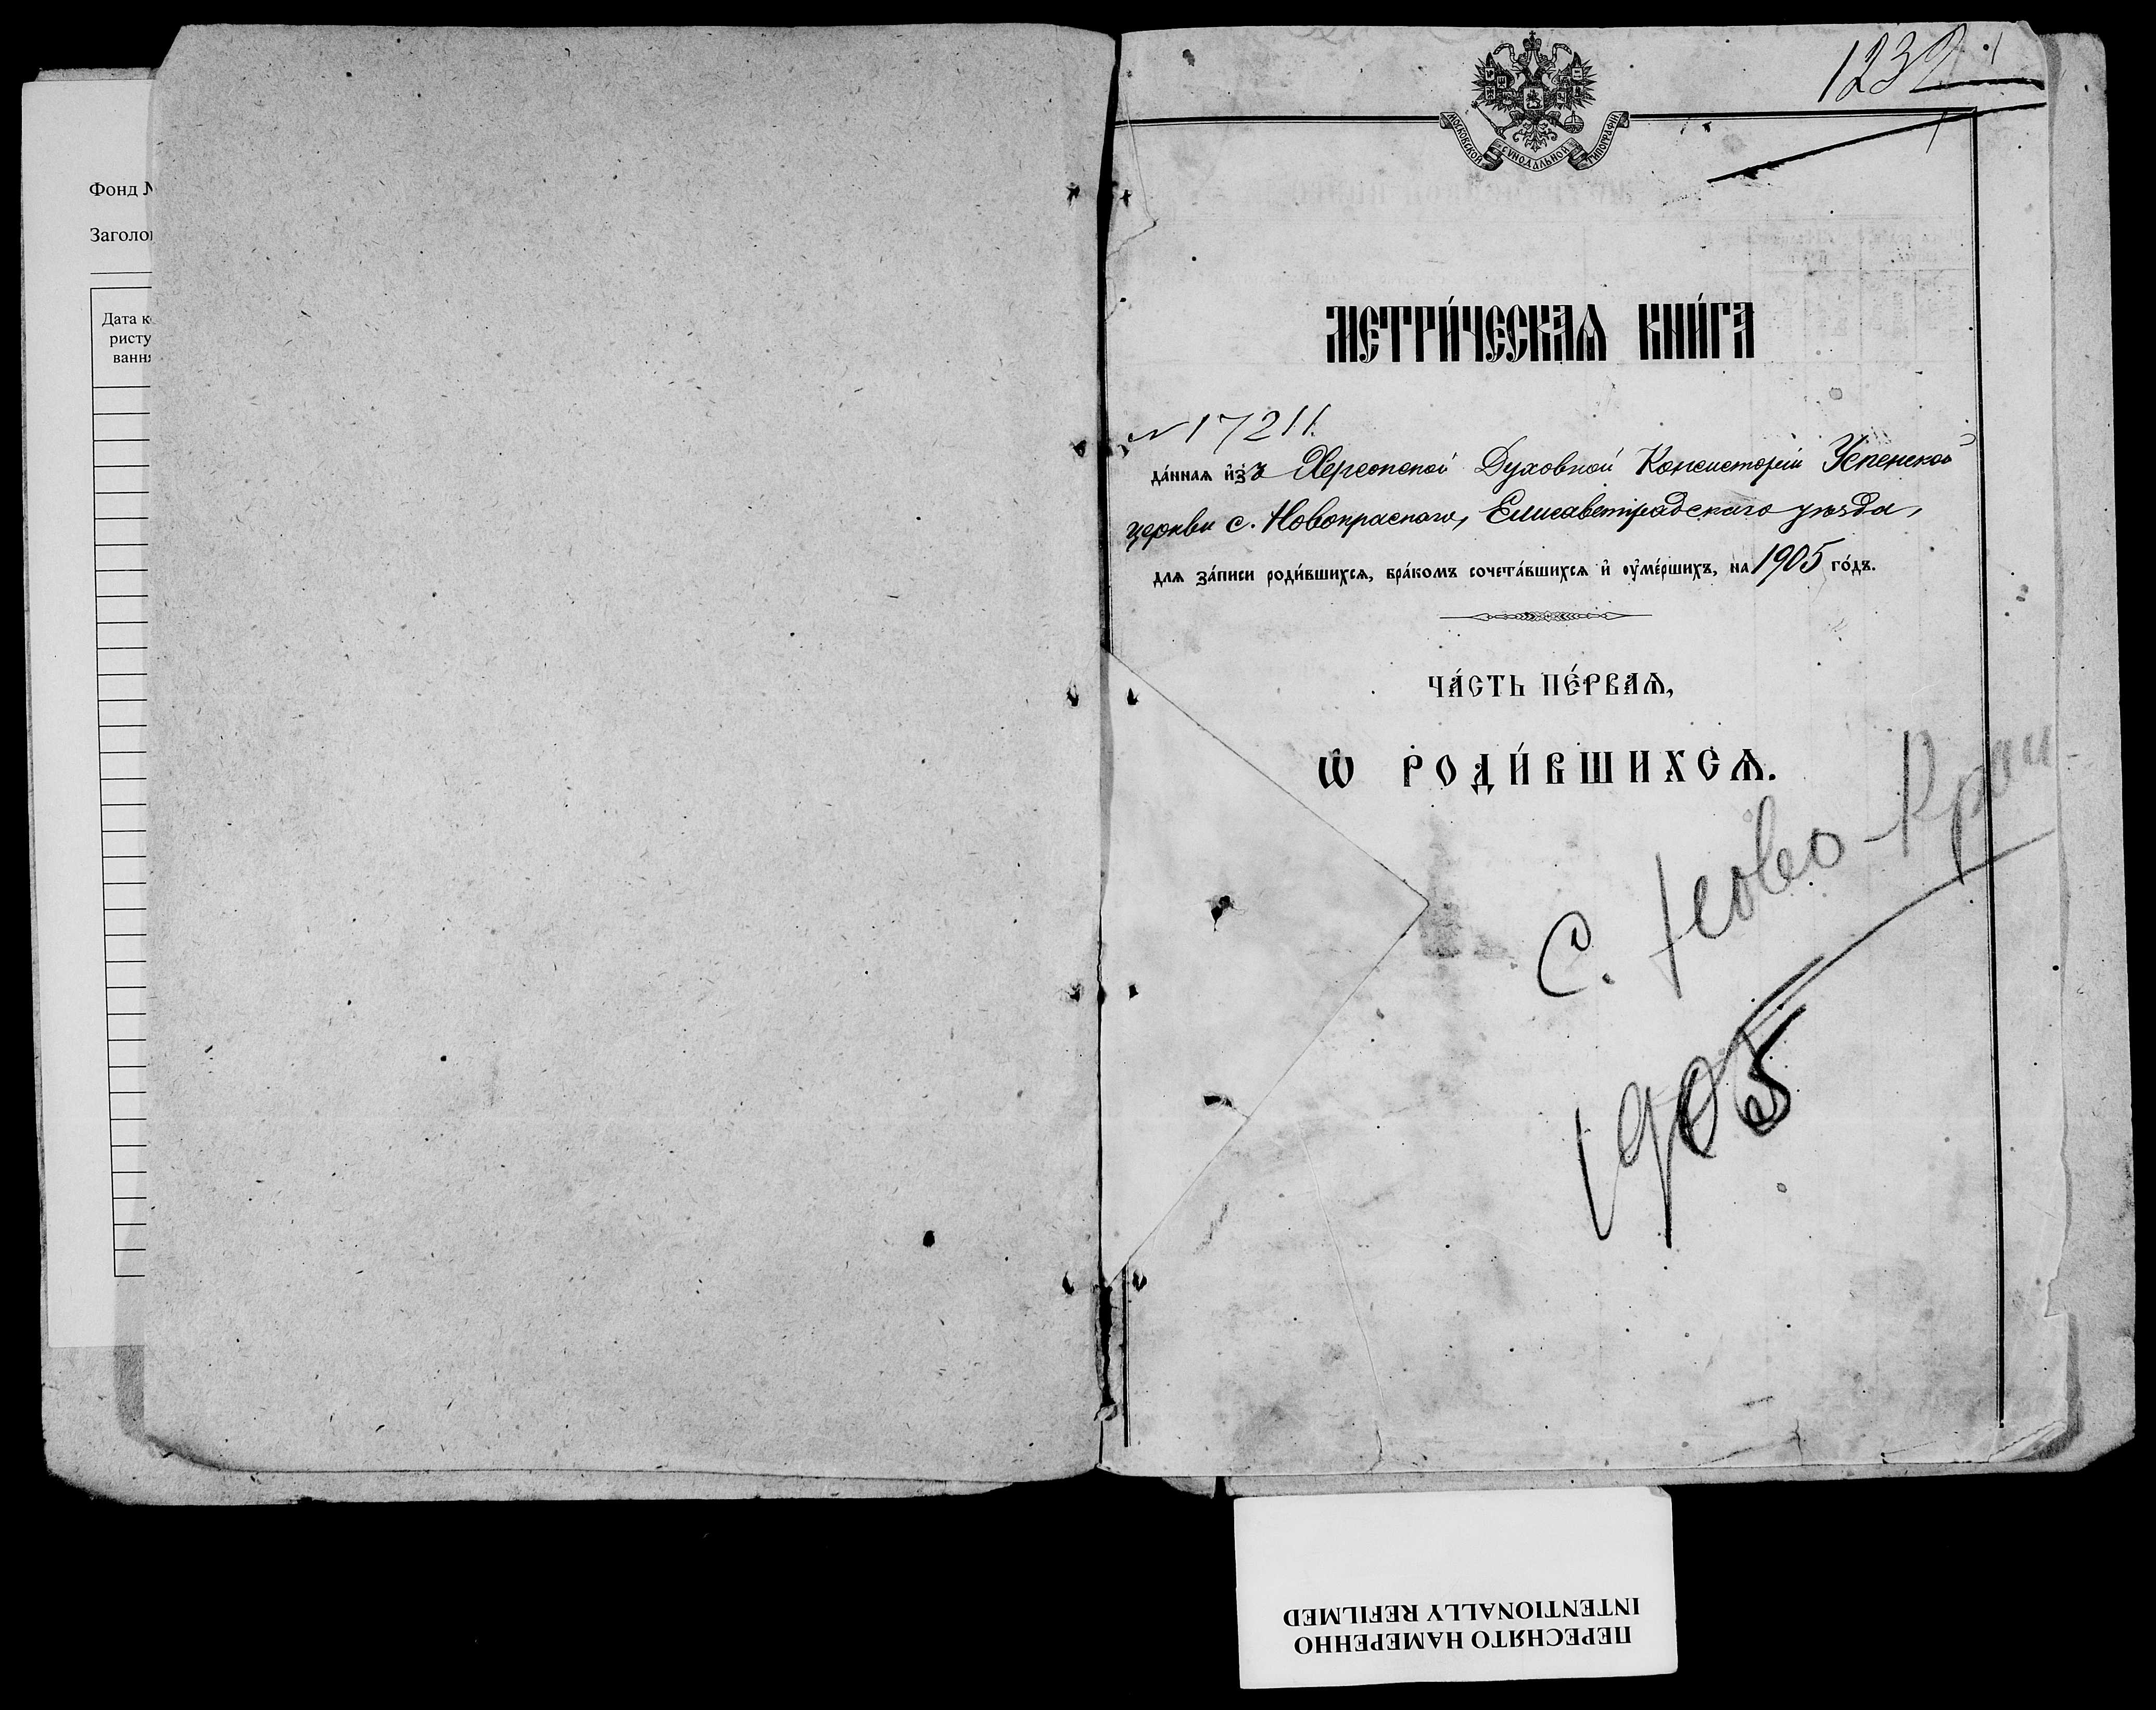 Фонд №
Заголо
Дата к
ристу
ванн
1232
МОСКОВСКОЙ СѴНОДАЛЬНОЙ ТИПОГРАФІИ
МЕТРИ́ЧЕСКАѦ КНИ́ГА
№ 17211.
да́ннаѧ и҆зъ Херсонской Духовной Консисторіи Успенской
церкви с. Новокрасного, Елисаветградскаго уѣзда,
длѧ за́писи роди́вшихсѧ, бра́комъ сочета́вшихсѧ и҆ ᲂу҆ме́ршихъ, на 1905 го́дъ.
ЧА́СТЬ ПЕ́РВАѦ,
Ѡ҆ РОДИ́ВШИХСѦ.
С. Ново-Кра
1905
ПЕРЕСНЯТО НАМЕРЕННО
INTENTIONALLY REFILMED